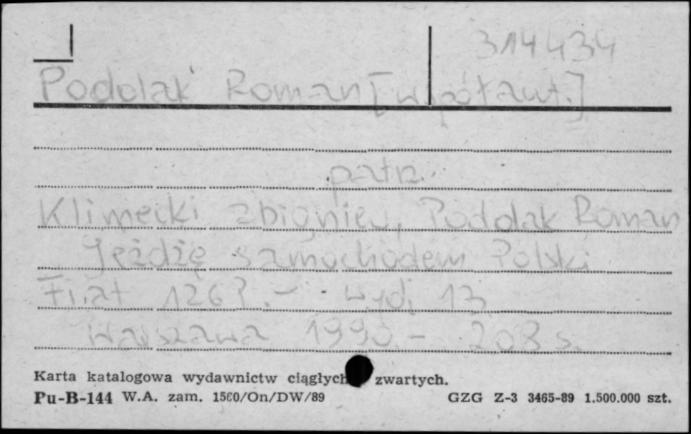 314434
Podolak Roman [współaut.]
patrz:
Klimecki Zbigniew, Podolak Roman
Jeżdżę samochodem Polski
Fiat 126P.- . wyd. 13
Warszawa 1990.- 208 s.
Karta katalogowa wydawnictw ciągłych zwartych.
Pu-B-144 W.A. zam. 1560/On/DW/89 GZG Z-3 3465-89 1.500.000 szt.